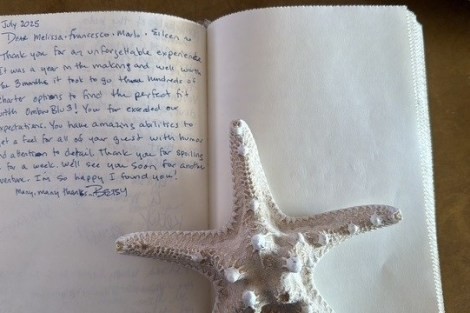 July 2025
Dear Melissa, Francesco, Mark, Eileen
Thank you for an unforgettable experience.
It was a year in the making and well worth
the 3 months it took to go through hundreds of
charter options to find the perfect fit
with Ombre Blu 3! You far exceeded our
expectations. You have amazing abilities to
get a feel for all of your guest with humor
and attention to detail. Thank you for spoiling
for a week. We'll see you soon for another
venture. I'm so happy I found you!
Many, many thanks, Betsy